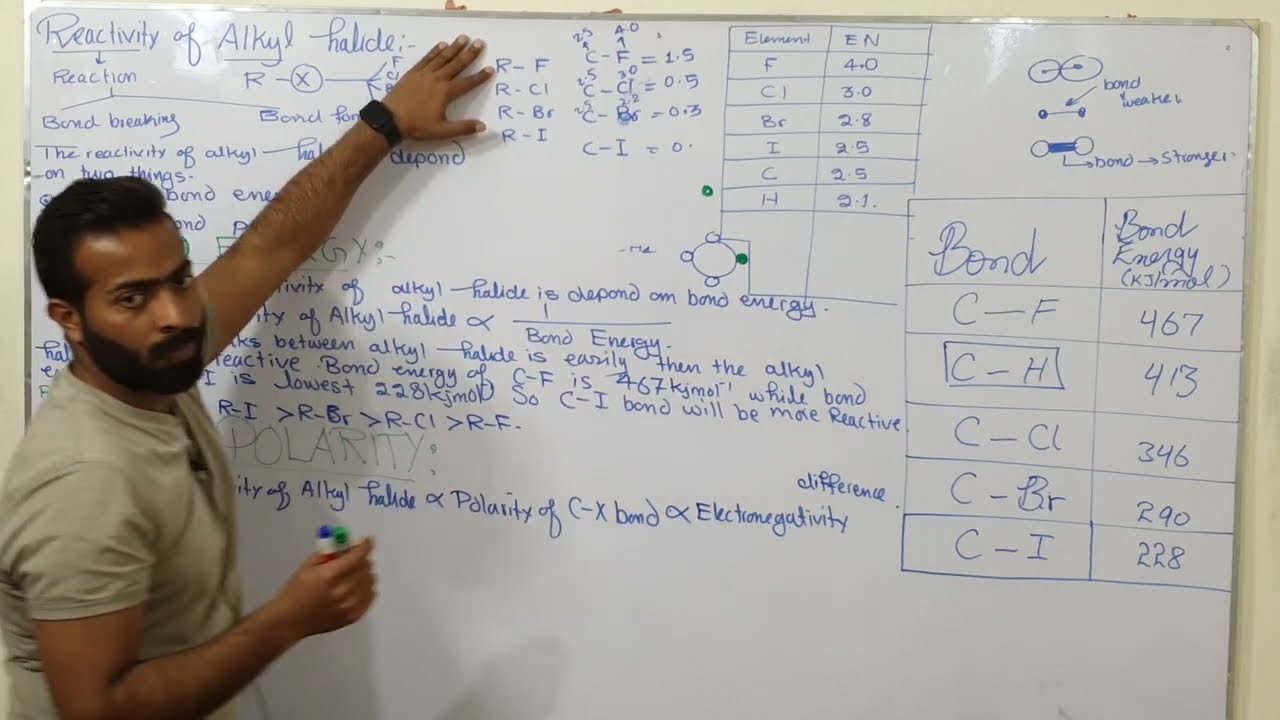 Reactivity of Alkyl halide:-
Reaction
R - X
F
Cl
Bond breaking
Bond for
The reactivity of alkyl halide depond
on two things.
bond ene
ond
E GY:-
tivity of alkyl halide is depond on bond energy.
ity of Alkyl halide ∝ 1 / Bond Energy.
ks between alkyl halide is easily then the alkyl
hal reactive. Bond energy of C-F is 467kjmol⁻¹ while bond
I is lowest 228kjmol) So C-I bond will be more Reactive
R-I > R-Br > R-Cl > R-F.
POLARITY:
difference
ity of Alkyl halide ∝ Polarity of C-X bond ∝ Electronegativity
R-F
R-Cl
R-Br
R-I
2.5 4.0
C-F = 1.5
2.5 3.0
C-Cl = 0.5
2.5 2.8
C-Br = 0.3
C-I = 0.
Element EN
F 4.0
Cl 3.0
Br 2.8
I 2.5
C 2.5
H 2.1.
bond
weaker
bond → Stronger.
Bond Bond Energy (KJ/mol)
C-F 467
C-H 413
C-Cl 346
C-Br 290
C-I 228